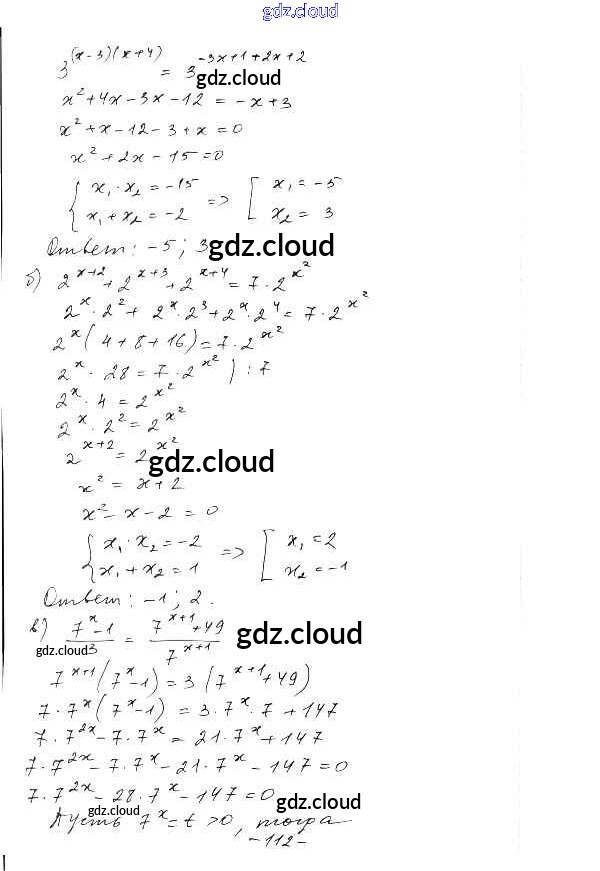 gdz.cloud
3^{(x-3)(x+4)} = 3^{-3x+1+2x+2}
gdz.cloud
x² + 4x - 3x - 12 = -x + 3
x² + x - 12 - 3 + x = 0
x² + 2x - 15 = 0
{ x₁ · x₂ = -15 => [ x₁ = -5
x₁ + x₂ = -2 x₂ = 3
Ответ: -5; 3
gdz.cloud
б) 2^{x+2} + 2^{x+3} + 2^{x+4} = 7 · 2^{x²}
2^x · 2² + 2^x · 2³ + 2^x · 2⁴ = 7 · 2^{x²}
2^x (4 + 8 + 16) = 7 · 2^{x²}
2^x · 28 = 7 · 2^{x²} ) : 7
2^x · 4 = 2^{x²}
2^x · 2² = 2^{x²}
2^{x+2} = 2^{x²}
gdz.cloud
x² = x + 2
x² - x - 2 = 0
{ x₁ · x₂ = -2 => [ x₁ = 2
x₁ + x₂ = 1 x₂ = -1
Ответ: -1; 2.
в) (7^x - 1)/3 = (7^{x+1} + 49)/7^{x+1}
gdz.cloud
gdz.cloud
7^{x+1} (7^x - 1) = 3 (7^{x+1} + 49)
gdz.cloud
7 · 7^x (7^x - 1) = 3 · 7^x · 7 + 147
7 · 7^{2x} - 7 · 7^x = 21 · 7^x + 147
7 · 7^{2x} - 7 · 7^x - 21 · 7^x - 147 = 0
7 · 7^{2x} - 28 · 7^x - 147 = 0
gdz.cloud
gdz.cloud
Пусть 7^x = t > 0, тогда
-112-